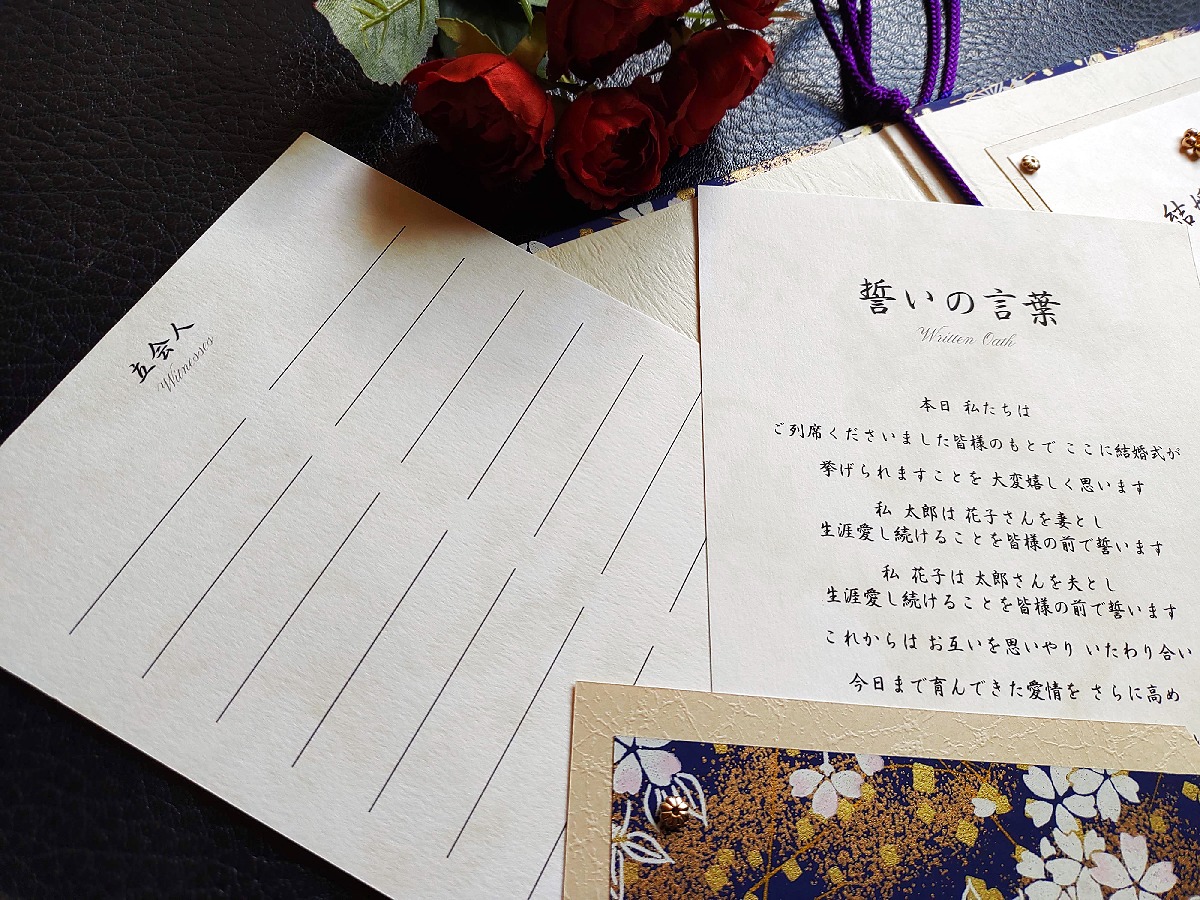 立会人
Witnesses
誓いの言葉
Written Oath
本日 私たちは
ご列席くださいました皆様のもとで ここに結婚式が
挙げられますことを 大変嬉しく思います
私 太郎は 花子さんを妻とし
生涯愛し続けることを皆様の前で誓います
私 花子は 太郎さんを夫とし
生涯愛し続けることを皆様の前で誓います
これからは お互いを思いやり いたわり合い
今日まで育んできた愛情を さらに高め
結婚